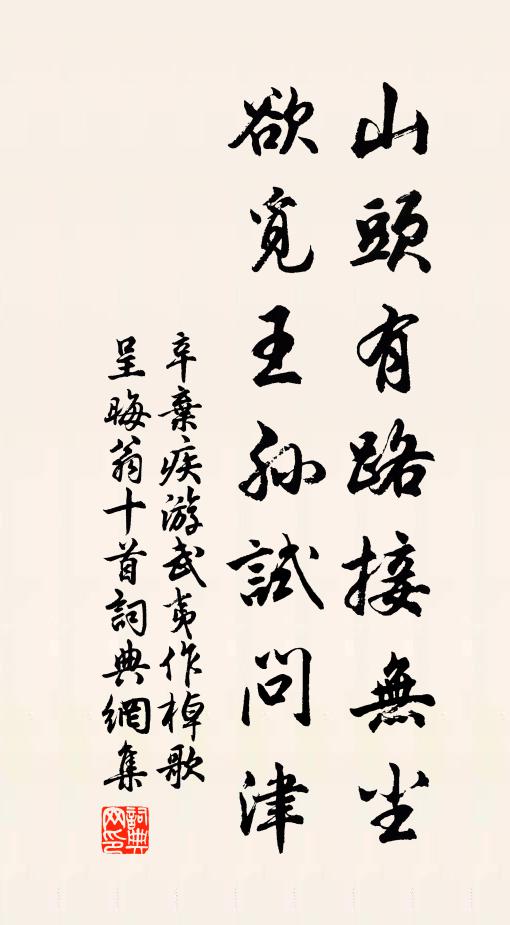 山頭有路接無尘
欲覓王孫試問津
辛棄疾游武夷作棹歌
呈晦翁十首詞典網集
詞典
网印